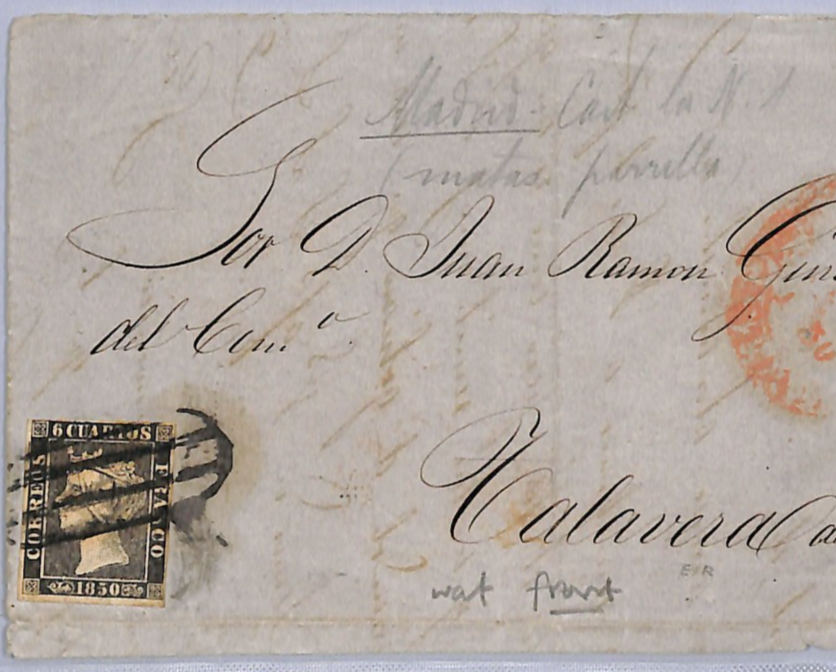 Madrid. Cart la N. 1
(matas parrilla)
Sor D. Juan Ramon
del Com.º
6 CUARTOS
CORREOS
FRANCO
1850
Talavera
wat front
E R